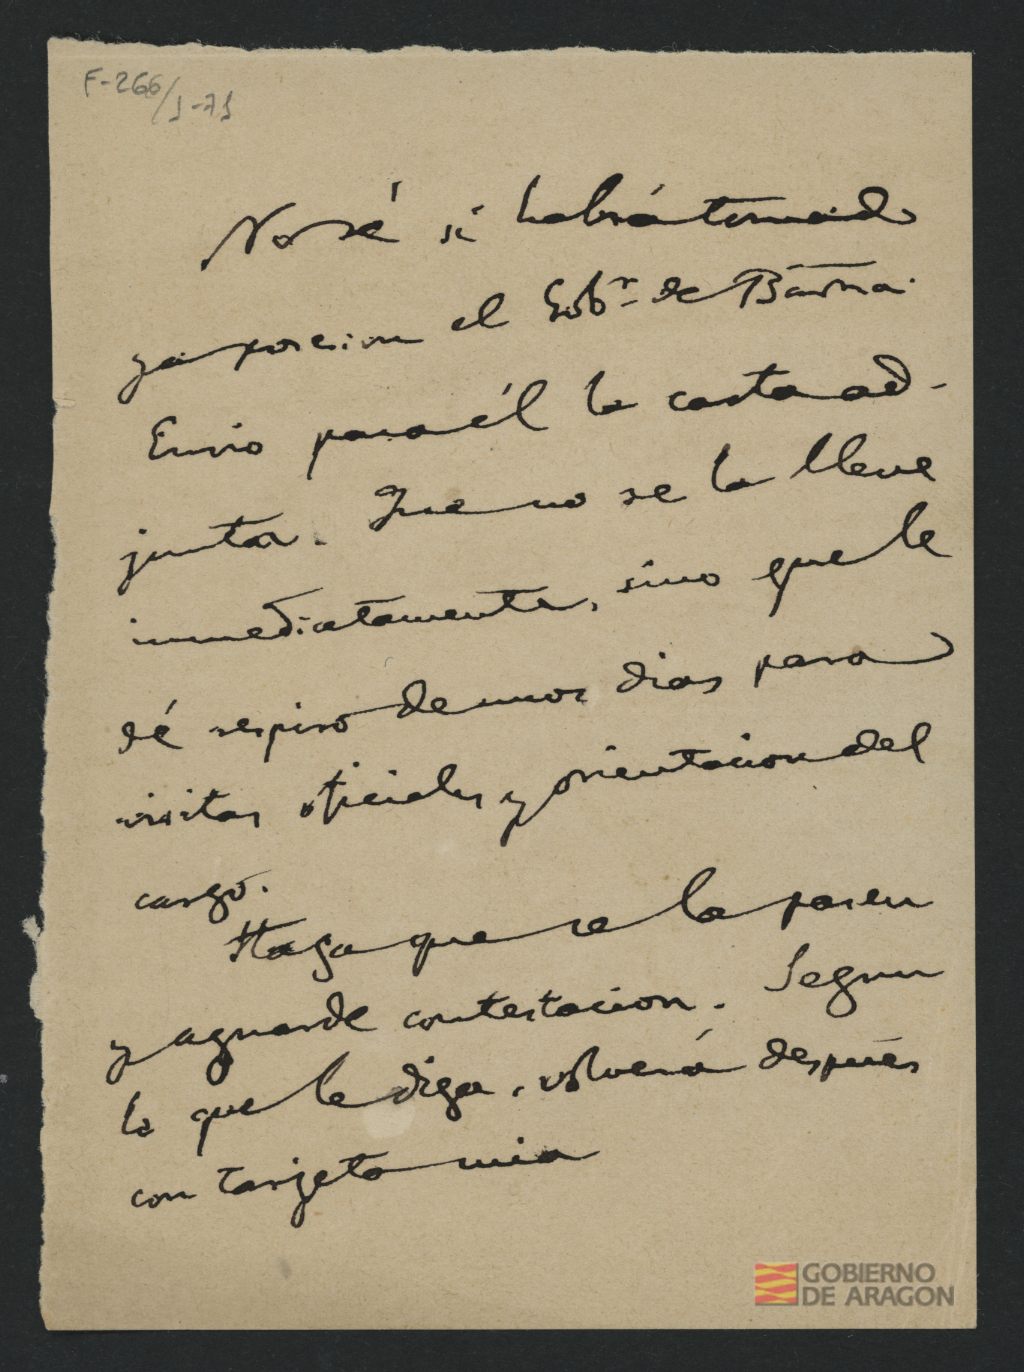 F-266/1-71
No sé si habrá tomado
ya posesion el Gobr. de Barna.
Envio para él la carta ad-
junta. Que no se la lleve
inmediatamente, sino que le
dé respiro de unos dias para
visitas oficiales y orientacion del
cargo.
Haga que se la pasen
y aguarde contestacion. Segun
lo que le diga, volverá despues
con tarjeta mia
GOBIERNO
DE ARAGON